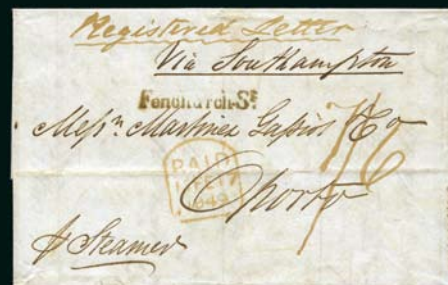 Registered Letter
Via Southampton
Fenchurch-St
Messrs Martinez Gassiot & Co
7/6
PAID
17 FE 17
1849
Oporto
p Steamer